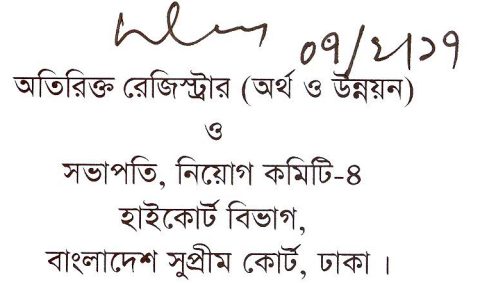 ০৭/২/১৭
অতিরিক্ত রেজিস্ট্রার (অর্থ ও উন্নয়ন)
ও
সভাপতি, নিয়োগ কমিটি-৪
হাইকোর্ট বিভাগ,
বাংলাদেশ সুপ্রীম কোর্ট, ঢাকা ।